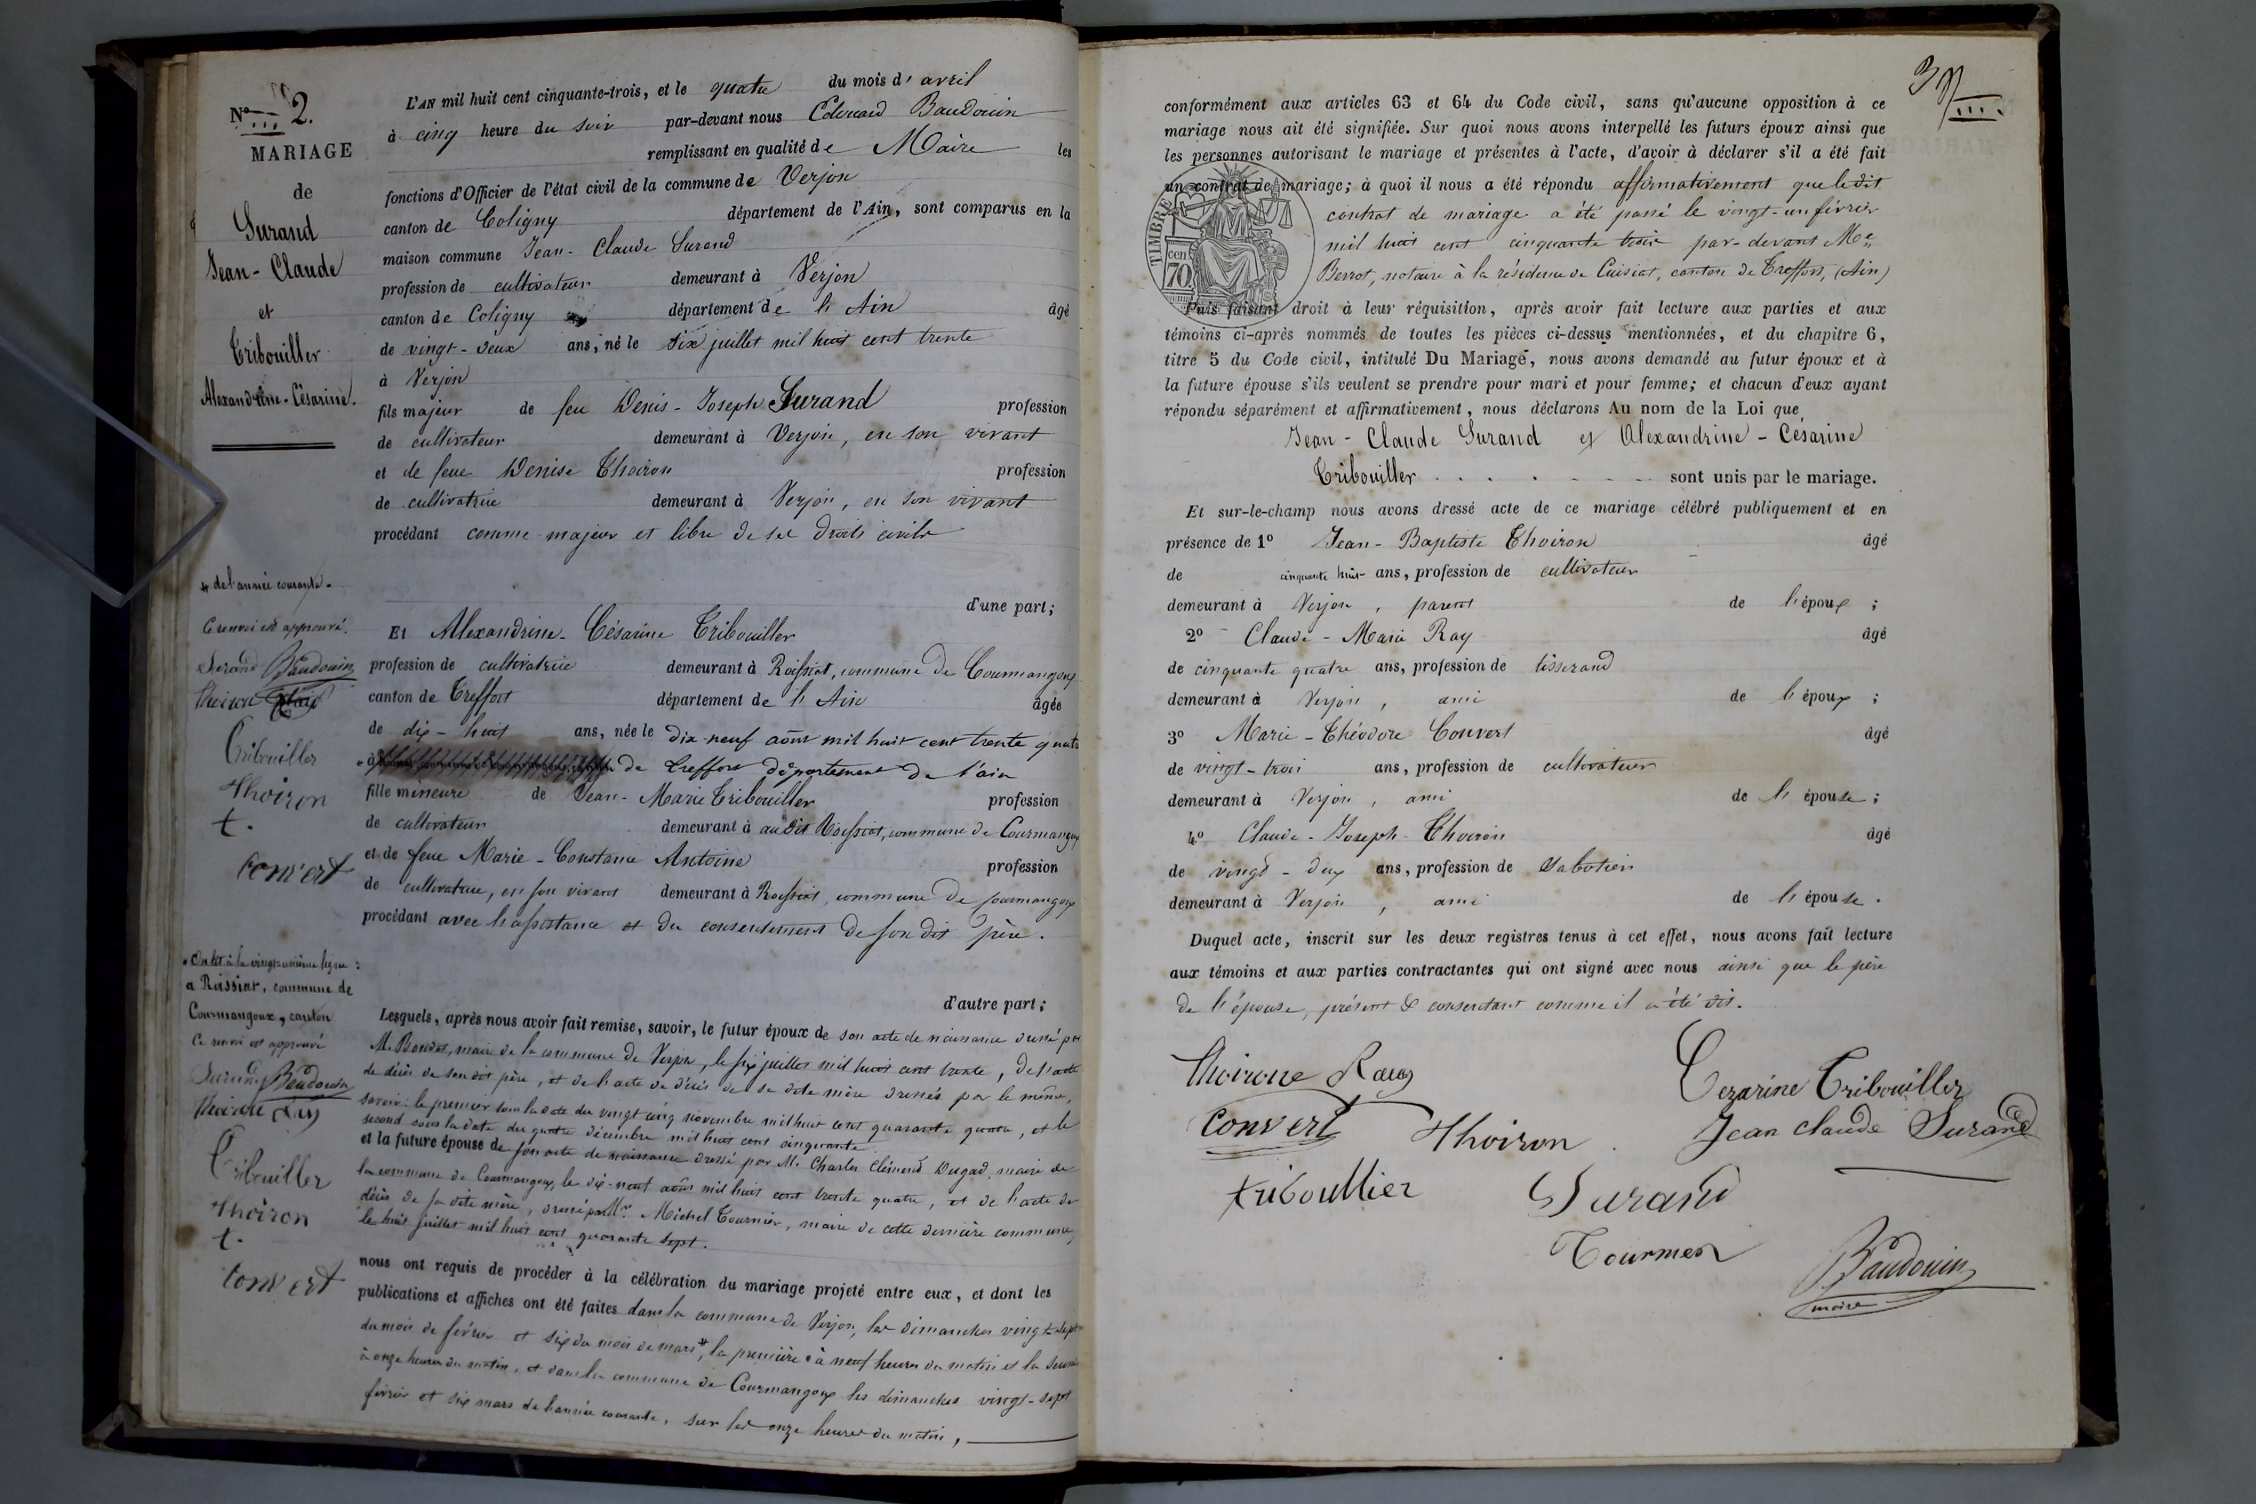 N° 2.
MARIAGE
de
Surand
Jean-Claude
et
Tribouiller
Alexandrine-Césarine.
L'AN mil huit cent cinquante-trois, et le quatre du mois d'avril
à cinq heure du soir par-devant nous Edouard Baudouin
remplissant en qualité de Maire les
fonctions d'Officier de l'état civil de la commune de Verjon
canton de Coligny département de l'Ain, sont comparus en la
maison commune Jean-Claude Surand
profession de cultivateur demeurant à Verjon
canton de Coligny département de l'Ain âgé
de vingt-deux ans, né le six juillet mil huit cent trente
à Verjon
fils majeur de feu Denis-Joseph Surand profession
de cultivateur demeurant à Verjon, en son vivant
et de feue Denise Thoiron profession
de cultivatrice demeurant à Verjon, en son vivant
procédant comme majeur et libre de ses droits civils
d'une part;
* de l'année courante.
Ce renvoi est approuvé.
Surand Baudouin
Thoiron
Tribouiller
Thoiron
t.
convert
Et Alexandrine-Césarine Tribouiller
profession de cultivatrice demeurant à Roissiat, commune de Courmangoux
canton de Treffort département de l'Ain âgée
de dix-huit ans, née le dix-neuf août mil huit cent trente quatre
à de treffort département de l'ain
fille mineure de Jean-Marie Tribouiller profession
de cultivateur demeurant à audit Roissiat, commune de Courmangoux
et de feue Marie-Constance Antoine profession
de cultivatrice, en son vivant demeurant à Roissiat, commune de Courmangoux
procédant avec l'assistance et du consentement de son dit père.
d'autre part;
* On lit à la vingt-unième ligne :
a Roissiat, commune de
Courmangoux, canton
Ce renvoi est approuvé
Surand Baudouin
Thoirone Ray
Tribouiller
Thoiron
t.
convert
Lesquels, après nous avoir fait remise, savoir, le futur époux de son acte de naissance dressé par
M. Boudet, maire de la commune de Verjon, le six juillet mil huit cent trente, de l'acte
de décès de son dit père, et de l'acte de décès de sa dite mère dressés par le même,
savoir: le premier sous la date du vingt cinq novembre mil huit cent quarante quatre, et le
second sous la date du quatre décembre mil huit cent cinquante
et la future épouse de son acte de naissance dressé par M. Charles Clément Dugad, maire de
la commune de Courmangoux, le dix-neuf août mil huit cent trente quatre, et de l'acte de
décès de sa dite mère, dressé par Mr Michel Tournier, maire de cette dernière commune,
le huit juillet mil huit cent quarante sept.
nous ont requis de procéder à la célébration du mariage projeté entre eux, et dont les
publications et affiches ont été faites dans la commune de Verjon, les dimanches vingt-sept
du mois de février et six du mois de mars*, la première à neuf heures du matin et la seconde
à onze heures du matin, et dans la commune de Courmangoux les dimanches vingt-sept
février et six mars de l'année courante, sur les onze heures du matin,
conformément aux articles 63 et 64 du Code civil, sans qu'aucune opposition à ce
mariage nous ait été signifiée. Sur quoi nous avons interpellé les futurs époux ainsi que
les personnes autorisant le mariage et présentes à l'acte, d'avoir à déclarer s'il a été fait
un contrat de mariage; à quoi il nous a été répondu affirmativement que ledit
contrat de mariage a été passé le vingt-un février
mil huit cent cinquante trois par-devant Me
Berrot, notaire à la résidence de Cuisiat, canton de Treffort, (Ain)
TIMBRE
cen
70
Puis faisant droit à leur réquisition, après avoir fait lecture aux parties et aux
témoins ci-après nommés de toutes les pièces ci-dessus mentionnées, et du chapitre 6,
titre 5 du Code civil, intitulé Du Mariage, nous avons demandé au futur époux et à
la future épouse s'ils veulent se prendre pour mari et pour femme; et chacun d'eux ayant
répondu séparément et affirmativement, nous déclarons Au nom de la Loi que
Jean-Claude Surand et Alexandrine-Césarine
Tribouiller sont unis par le mariage.
Et sur-le-champ nous avons dressé acte de ce mariage célébré publiquement et en
présence de 1° Jean-Baptiste Thoiron âgé
de cinquante huit ans, profession de cultivateur
demeurant à Verjon, parent de l'époux;
2° Claude-Marie Ray âgé
de cinquante quatre ans, profession de tisserand
demeurant à Verjon, ami de l'époux;
3° Marie-Théodore Convert âgé
de vingt-trois ans, profession de cultivateur
demeurant à Verjon, ami de l'épouse;
4° Claude-Joseph Thoiron âgé
de vingt-deux ans, profession de sabotier
demeurant à Verjon, ami de l'épouse.
Duquel acte, inscrit sur les deux registres tenus à cet effet, nous avons fait lecture
aux témoins et aux parties contractantes qui ont signé avec nous ainsi que le père
de l'épouse, présent & consentant comme il a été dit.
Thoirone Ray
Cezarine Tribouiller
convert Thoiron
Jean claude Surand
triboullier
Surand
Tournier
Baudouin
maire